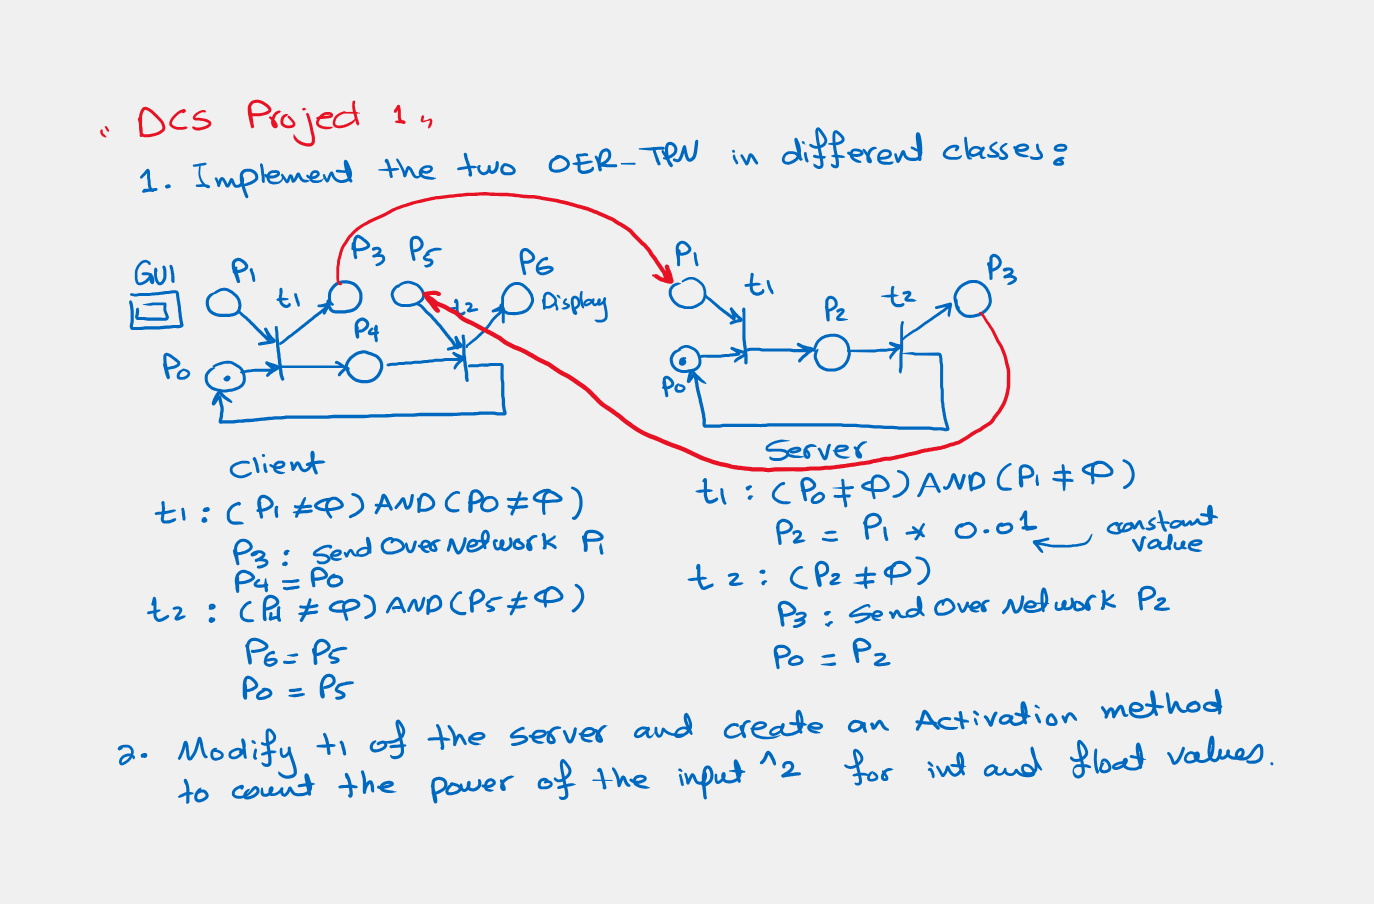 "DCS Project 1"
1. Implement the two OER-TPN in different classes:
GUI
P1
t1
P3
P5
t2
P6
Display
P4
P0
Client
P1
t1
P2
t2
P3
P0
Server
t1 : ( P1 ≠ Φ ) AND ( P0 ≠ Φ )
P3 : Send Over Network P1
P4 = P0
t2 : ( P4 ≠ Φ ) AND ( P5 ≠ Φ )
P6 = P5
P0 = P5
t1 : ( P0 ≠ Φ ) AND ( P1 ≠ Φ )
P2 = P1 * 0.01
constant
value
t2 : ( P2 ≠ Φ )
P3 : Send Over Network P2
P0 = P2
2. Modify t1 of the server and create an Activation method
to count the power of the input ^2 for int and float values.